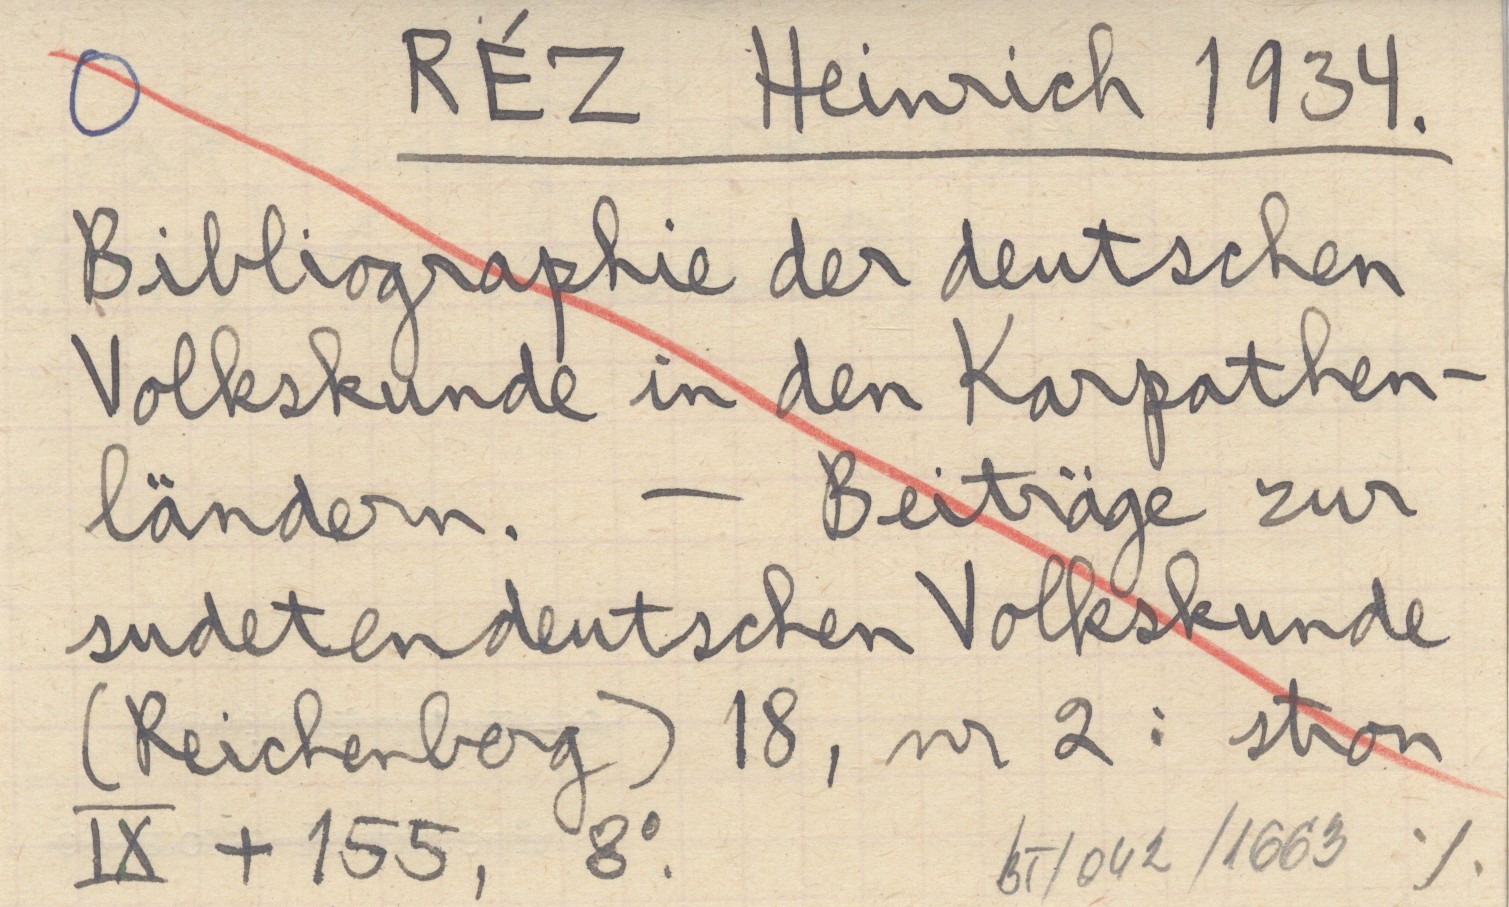 O RÉZ Heinrich 1934.
Bibliographie der deutschen
Volkskunde in den Karpathen-
ländern. — Beiträge zur
sudetendeutschen Volkskunde
(Reichenberg) 18, nr 2 : stron
IX + 155, 8°.
BT/042/1663 ·/.